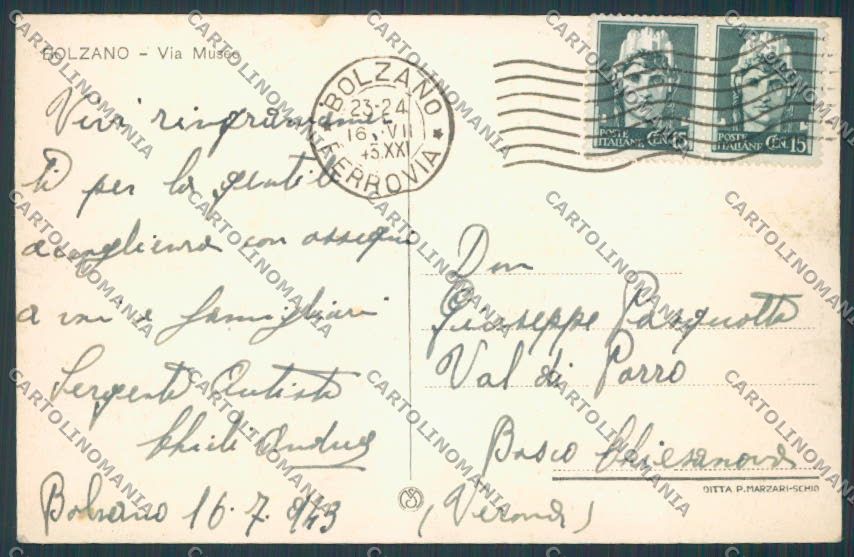 BOLZANO - Via Museo
Vivi ringraziamen
ti per la gentile
accoglienza con ossequi
a voi e famigliari
Sergente Autista
Andrea
Bolzano 16.7.943
BOLZANO
23-24
16.VII
43.XXI
FERROVIA
POSTE ITALIANE CEN. 15
POSTE ITALIANE CEN. 15
Don
Giuseppe Pasquotto
Val di Porro
Bosco Chiesanova
(Verona)
DITTA P. MARZARI-SCHIO
CARTOLINOMANIA